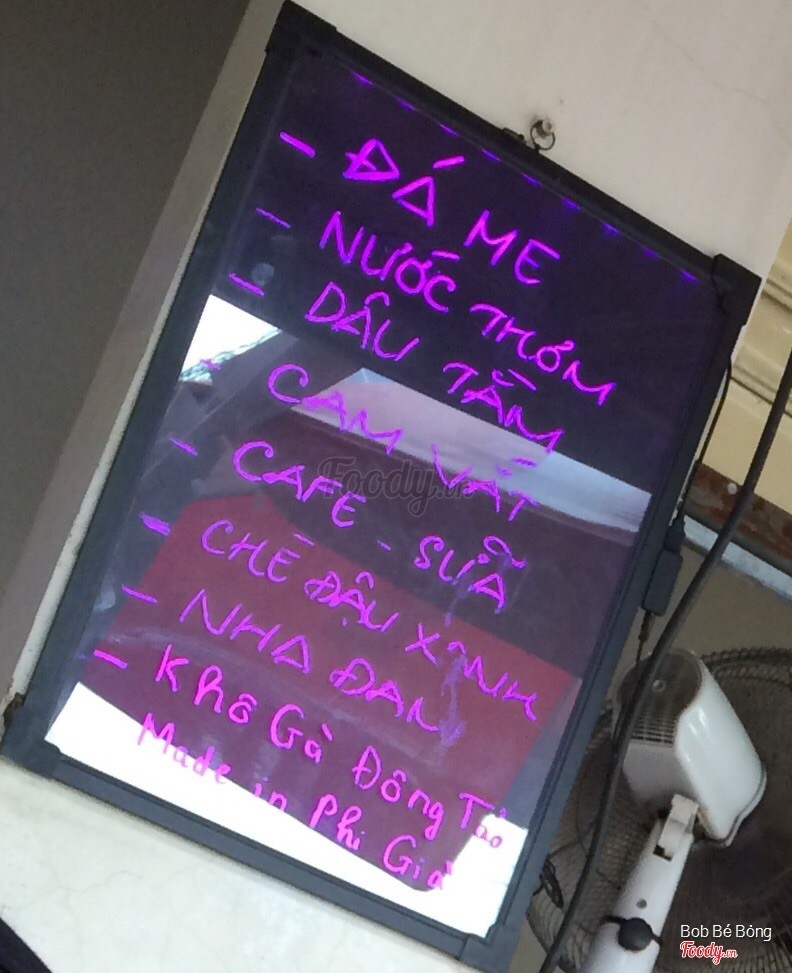 - ĐÁ ME
- NƯỚC THƠM
- DÂU TẰM
- CAM VẮT
- CAFE - SỮA
- CHÈ ĐẬU XANH
- NHA ĐAM
- Khô Gà Đông Tảo
Made in Phi Gia
Foody.vn
Bob Bé Bỏng
Foody.vn